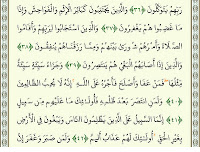 رَبِّهِمْ يَتَوَكَّلُونَ ﴿٣٦﴾ وَالَّذِينَ يَجْتَنِبُونَ كَبَائِرَ الْإِثْمِ وَالْفَوَاحِشَ وَإِذَا
مَا غَضِبُوا هُمْ يَغْفِرُونَ ﴿٣٧﴾ وَالَّذِينَ اسْتَجَابُوا لِرَبِّهِمْ وَأَقَامُوا
الصَّلَاةَ وَأَمْرُهُمْ شُورَى بَيْنَهُمْ وَمِمَّا رَزَقْنَاهُمْ يُنْفِقُونَ ﴿٣٨﴾
وَالَّذِينَ إِذَا أَصَابَهُمُ الْبَغْيُ هُمْ يَنْتَصِرُونَ ﴿٣٩﴾ وَجَزَاءُ سَيِّئَةٍ سَيِّئَةٌ
مِثْلُهَا فَمَنْ عَفَا وَأَصْلَحَ فَأَجْرُهُ عَلَى اللَّهِ إِنَّهُ لَا يُحِبُّ الظَّالِمِينَ
﴿٤٠﴾ وَلَمَنِ انْتَصَرَ بَعْدَ ظُلْمِهِ فَأُولَئِكَ مَا عَلَيْهِمْ مِنْ سَبِيلٍ
﴿٤١﴾ إِنَّمَا السَّبِيلُ عَلَى الَّذِينَ يَظْلِمُونَ النَّاسَ وَيَبْغُونَ فِي الْأَرْضِ
بِغَيْرِ الْحَقِّ أُولَئِكَ لَهُمْ عَذَابٌ أَلِيمٌ ﴿٤٢﴾ وَلَمَنْ صَبَرَ وَغَفَرَ إِنَّ